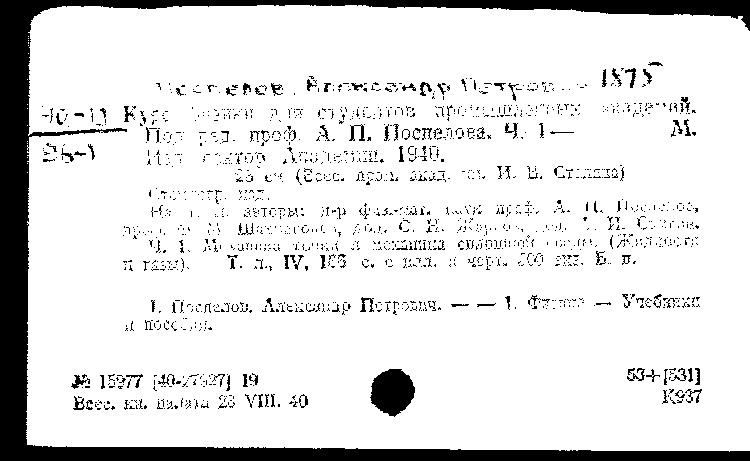 Поспелов, Александр Петрович 1875
40-13 Курс физики для студентов промышленных академий.
Под ред. проф. А. П. Поспелова. Ч. 1— М.
36-1 Изд. сектор Академии. 1940.
23 см (Всес. пром. акад. им. И. В. Сталина)
Стеклогр. изд.
На т. л. авторы: д-р физ.-мат. наук проф. А. П. Поспелов,
доц. С. Н. Жарков, доц. И.
Ч. 1. Механика точки и механика сплошной среды. (Жидкости
и газы). Т. л., IV, 166 с. с илл. и черт. 500 экз. Б. ц.
1. Поспелов, Александр Петрович. — — 1. Физика — Учебники
и пособия.
№ 15977 [40-27927] 19 53+[531]
Всес. кн. палата 23 VIII. 40 К937